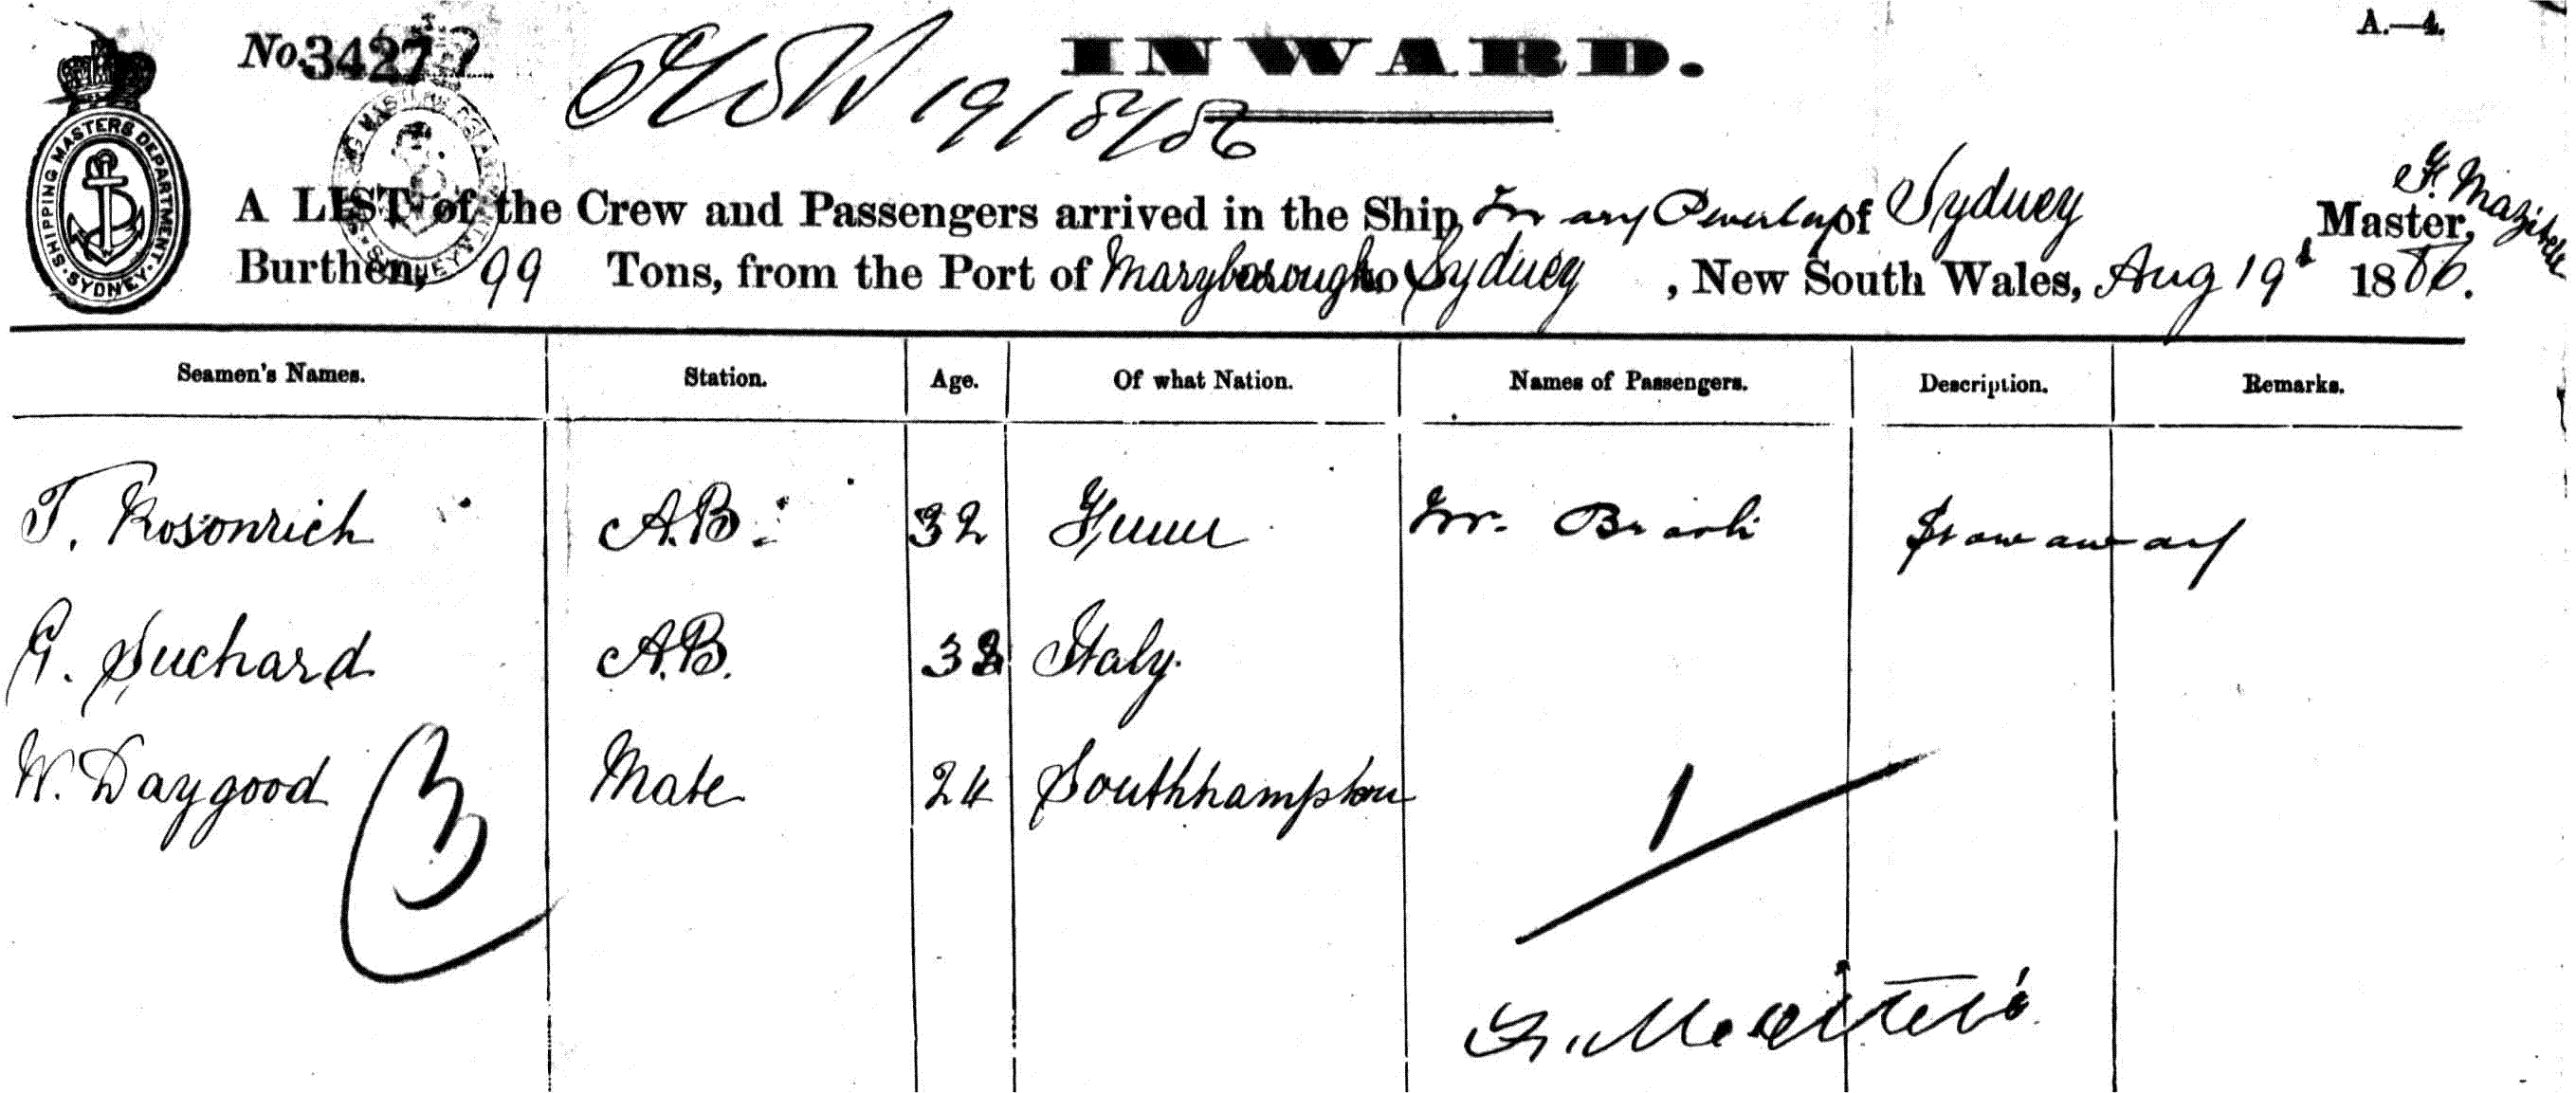 A.—4.
No. 3427
INWARD.
19/8/86
SHIPPING MASTERS DEPARTMENT. SYDNEY
F. Mazitelli
A LIST of the Crew and Passengers arrived in the Ship Mary of Sydney Master,
Burthen, 99 Tons, from the Port of Maryborough to Sydney, New South Wales, Aug 19th 1886.
Seamen's Names. Station. Age. Of what Nation. Names of Passengers. Description. Remarks.
T. Rosonrich A.B. 32 Mr. Stowaway
G. Suchard A.B. 38 Italy.
W. Daygood Mate 24 Southhampton
3
1